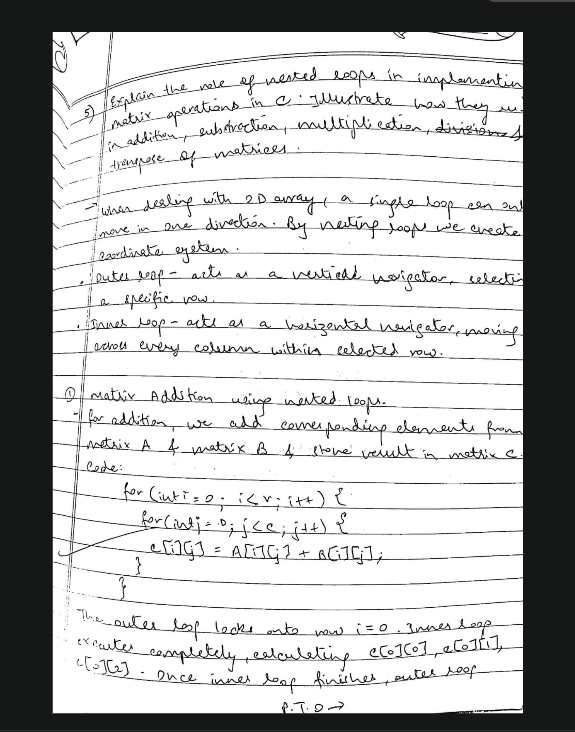 5) Explain the role of nested loops in implementin
matrix operations in C. Illustrate how they
in addition, substraction, multiplication, division &
transpose of matrices.
→ When dealing with 2D array, a single loop can onl
move in one direction. By nesting loops we create
coordinate system.
• Outer loop - acts as a vertical navigator, selectin
a specific row.
• Inner loop - acts as a horizontal navigator, moving
across every column within selected row.
① Matrix Addition using nested loops.
- for addition, we add corresponding elements from
matrix A & matrix B & store result in matrix C.
Code:
for (int i = 0; i<r; i++) {
for(int j = 0; j<c; j++) {
c[i][j] = A[i][j] + B[i][j];
}
}
The outer loop locks onto row i=0. Inner loop
executes completely, calculating c[0][0], c[0][1],
c[0][2]. Once inner loop finishes, outer loop
P.T.O →